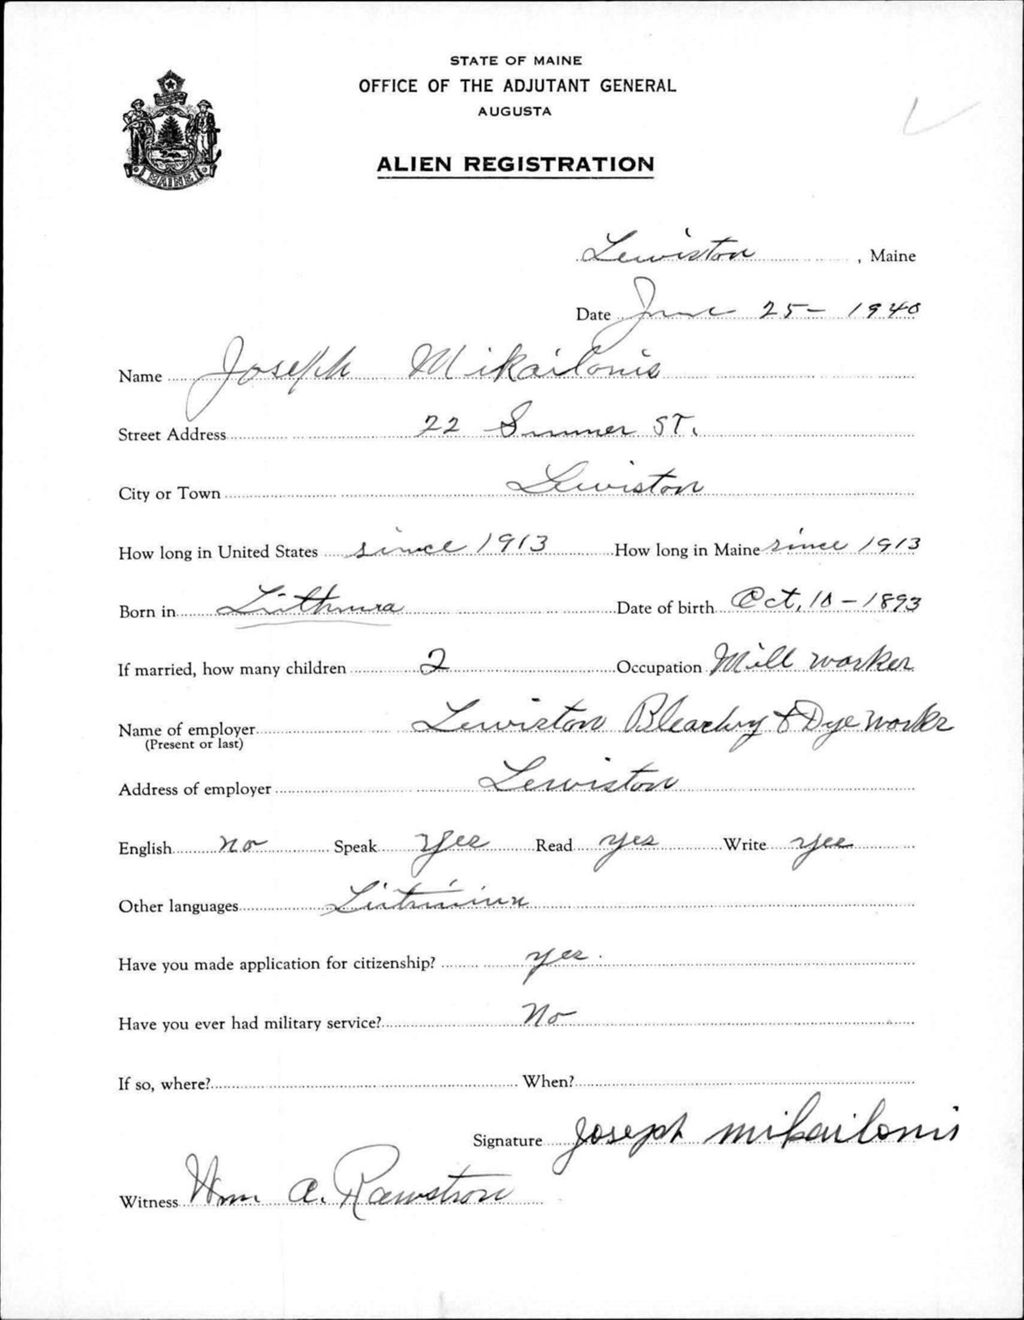 STATE OF MAINE
OFFICE OF THE ADJUTANT GENERAL
AUGUSTA
ALIEN REGISTRATION
MAINE
Lewiston, Maine
Date June 25 - 1940
Name Joseph Mikailonis
Street Address 22 Summer ST.
City or Town Lewiston
How long in United States since 1913 How long in Maine since 1913
Born in Lithnura Date of birth Oct. 10 - 1893
If married, how many children 2 Occupation Mill worker
Name of employer Lewiston Bleachry & Dye Works
(Present or last)
Address of employer Lewiston
English no Speak Yes Read yes Write yes
Other languages
Have you made application for citizenship? yes.
Have you ever had military service? No
If so, where? When?
Signature Joseph mikailonis
Witness Wm. A. Rawstron